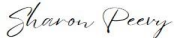 Sharon Peery